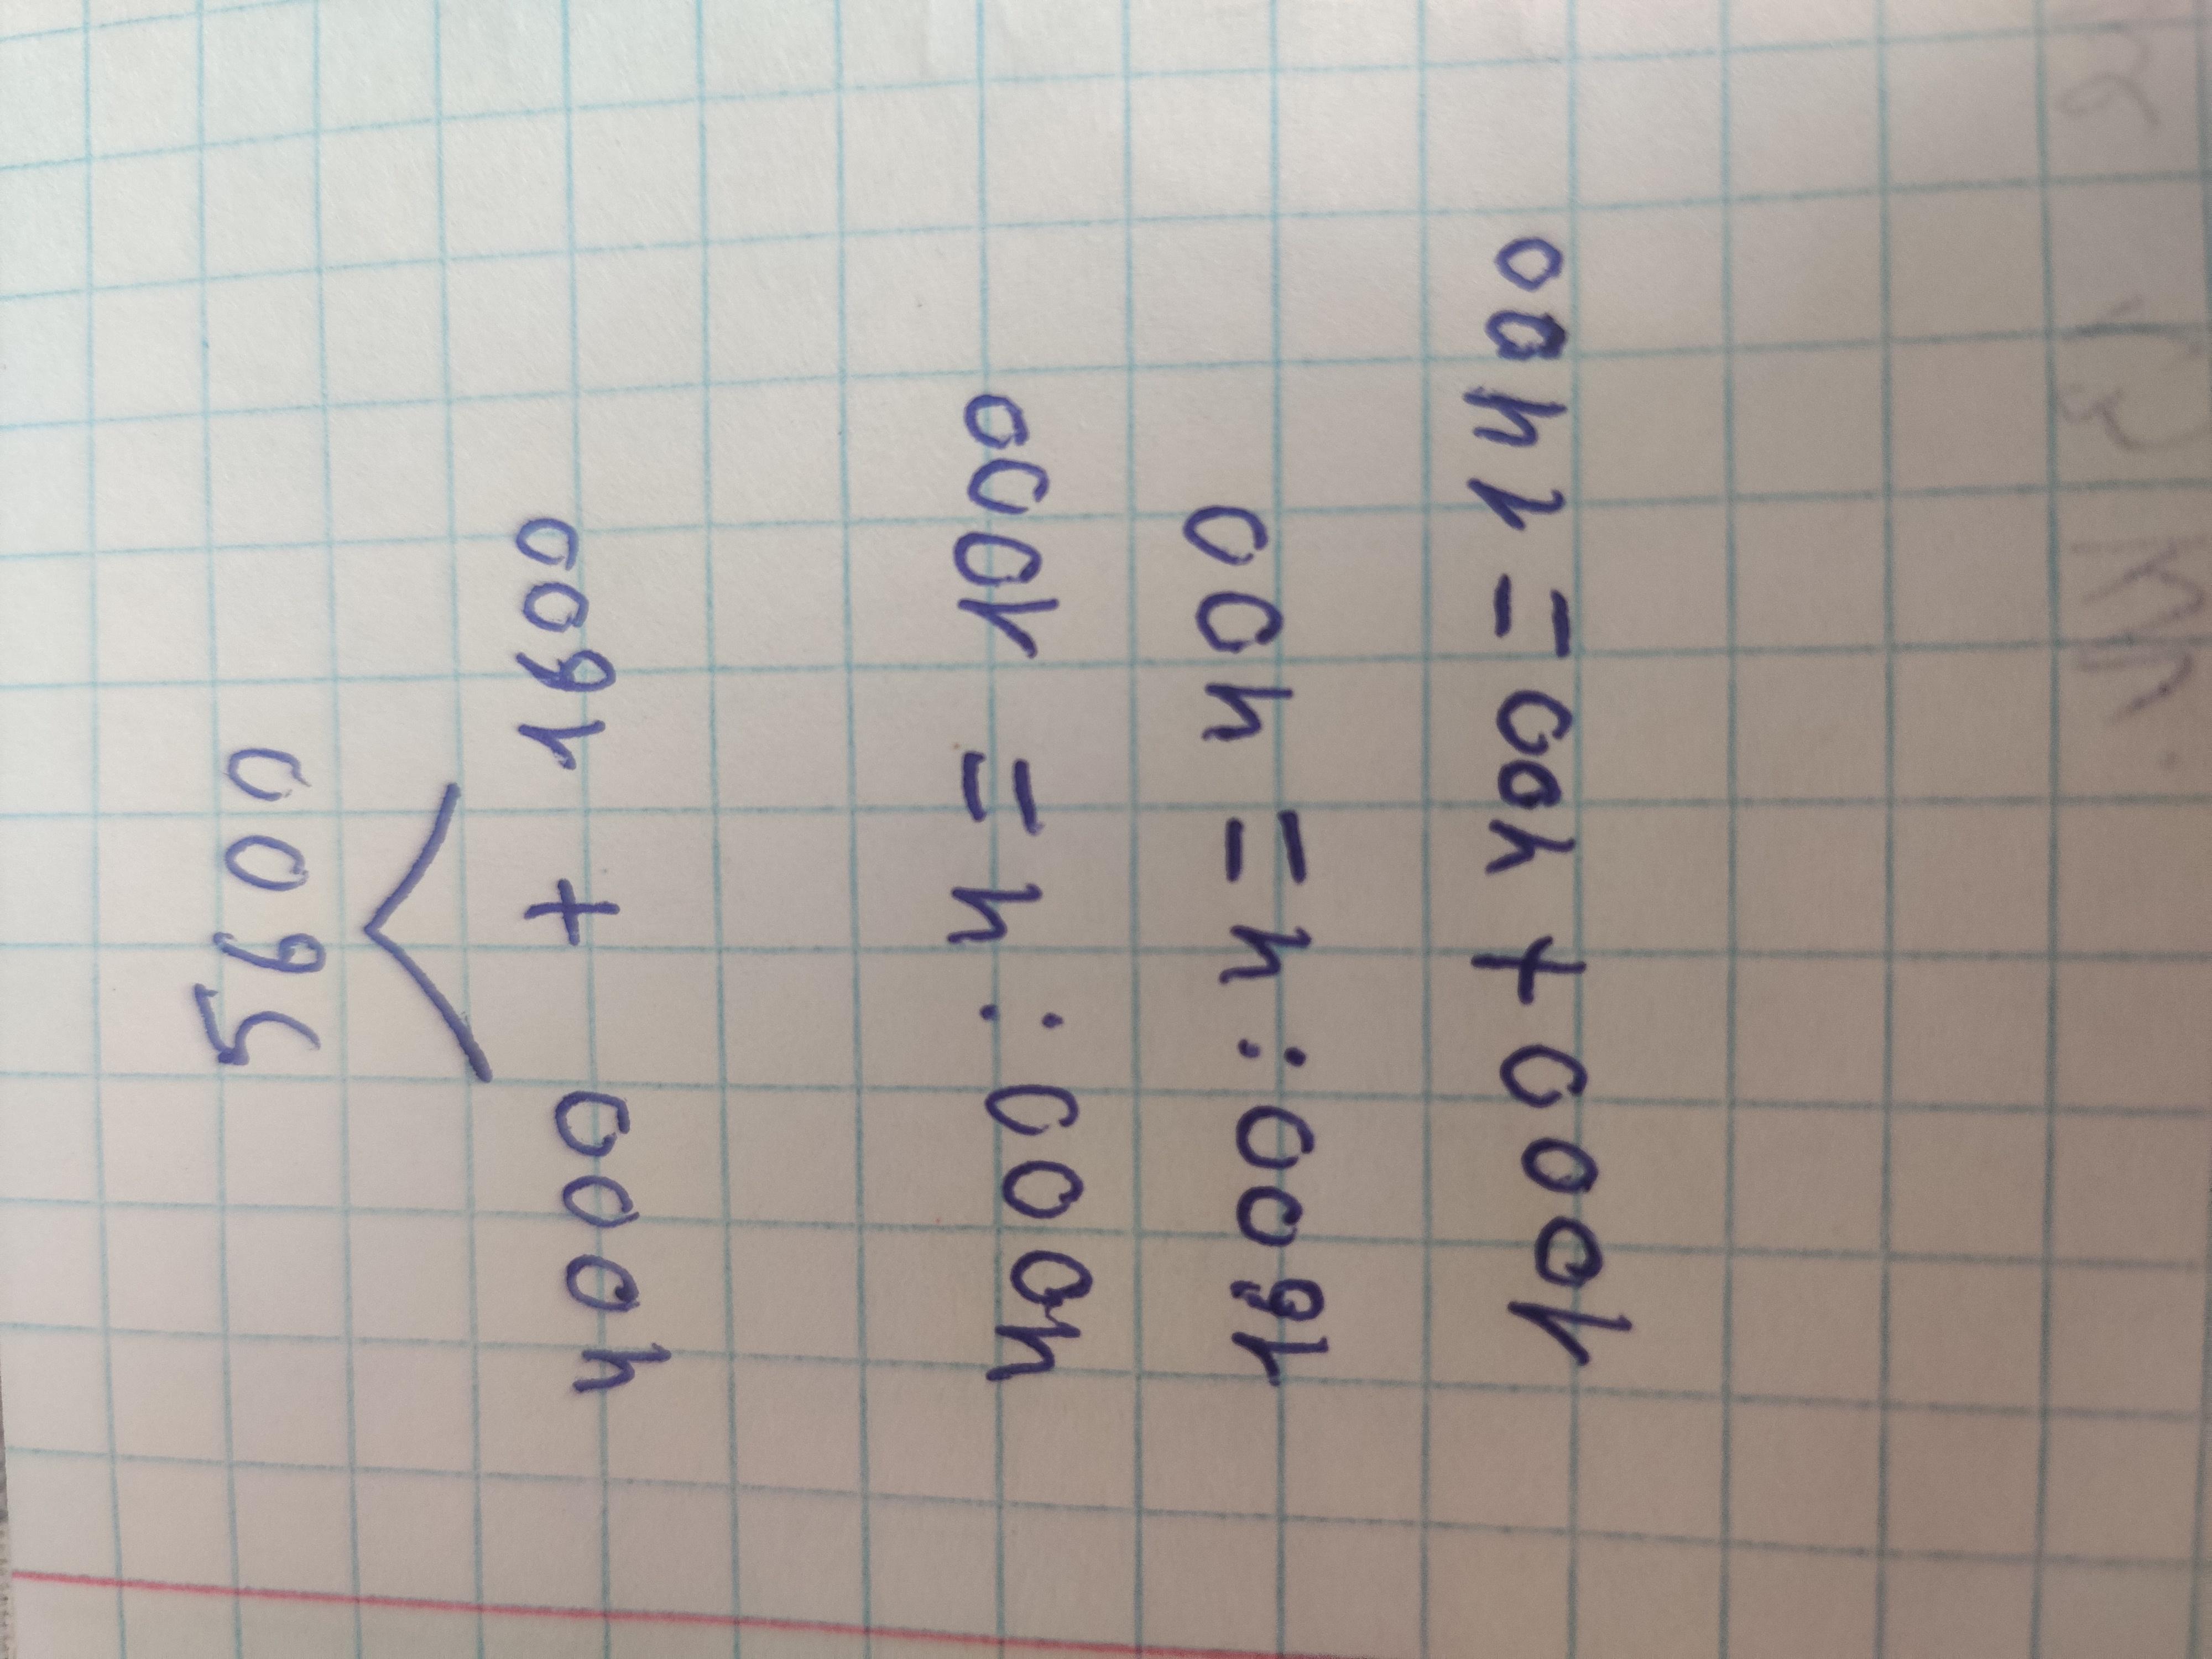 5600
4000 + 1600
4000 : 4 = 1000
1600 : 4 = 400
1000 + 400 = 1400